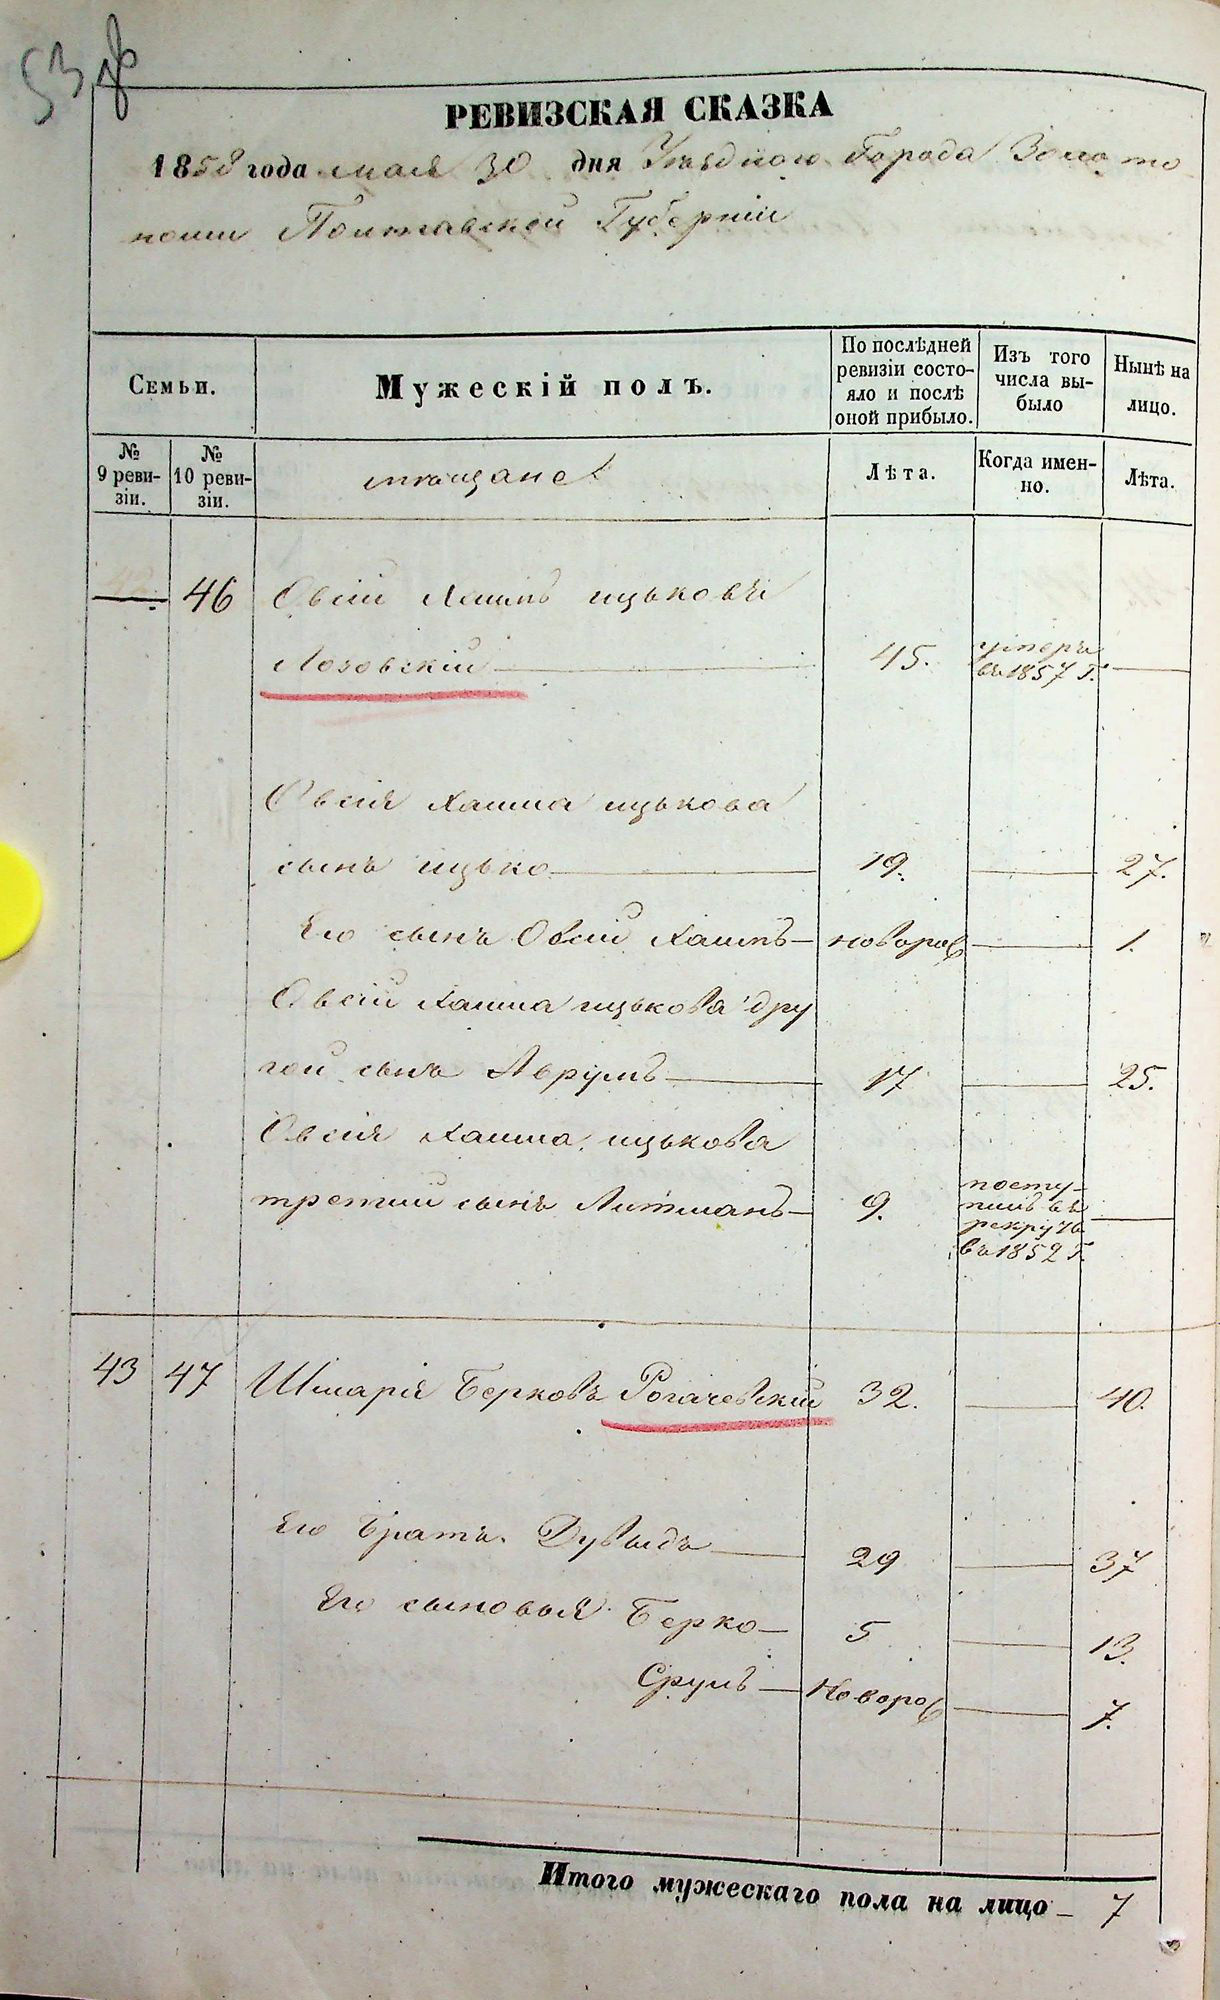 53
РЕВИЗСКАЯ СКАЗКА
1858 года мая 30 дня Уезднаго Города Золото
ноши Полтавской Губернии
Семьи.
Мужескій полъ.
По послѣдней ревизіи состояло и послѣ оной прибыло.
Изъ того числа выбыло
Нынѣ на лицо.
№ 9 ревизіи.
№ 10 ревизіи.
мещане
Лѣта.
Когда именно.
Лѣта.
46 Овсій Хаимъ ицьковъ
Лозовскій 45. умеръ въ 1857 г.
Овсія Хаима ицькова
сынъ ицько 19. 27.
Его сынъ Овсій Хаимъ новорож 1.
Овсій Хаима ицькова дру
гой сынъ Аврумъ 17 25.
Овсія Хаима ицькова
третий сынъ Литманъ 9. поступилъ въ рекруты въ 1852 г.
43 47 Шмарія Берковъ Рогачевскій 32. 40.
Его братъ Дувыдъ 29 37
Его сыновья Берко 5 13.
Срулъ Новорож 7.
Итого мужескаго пола на лицо 7